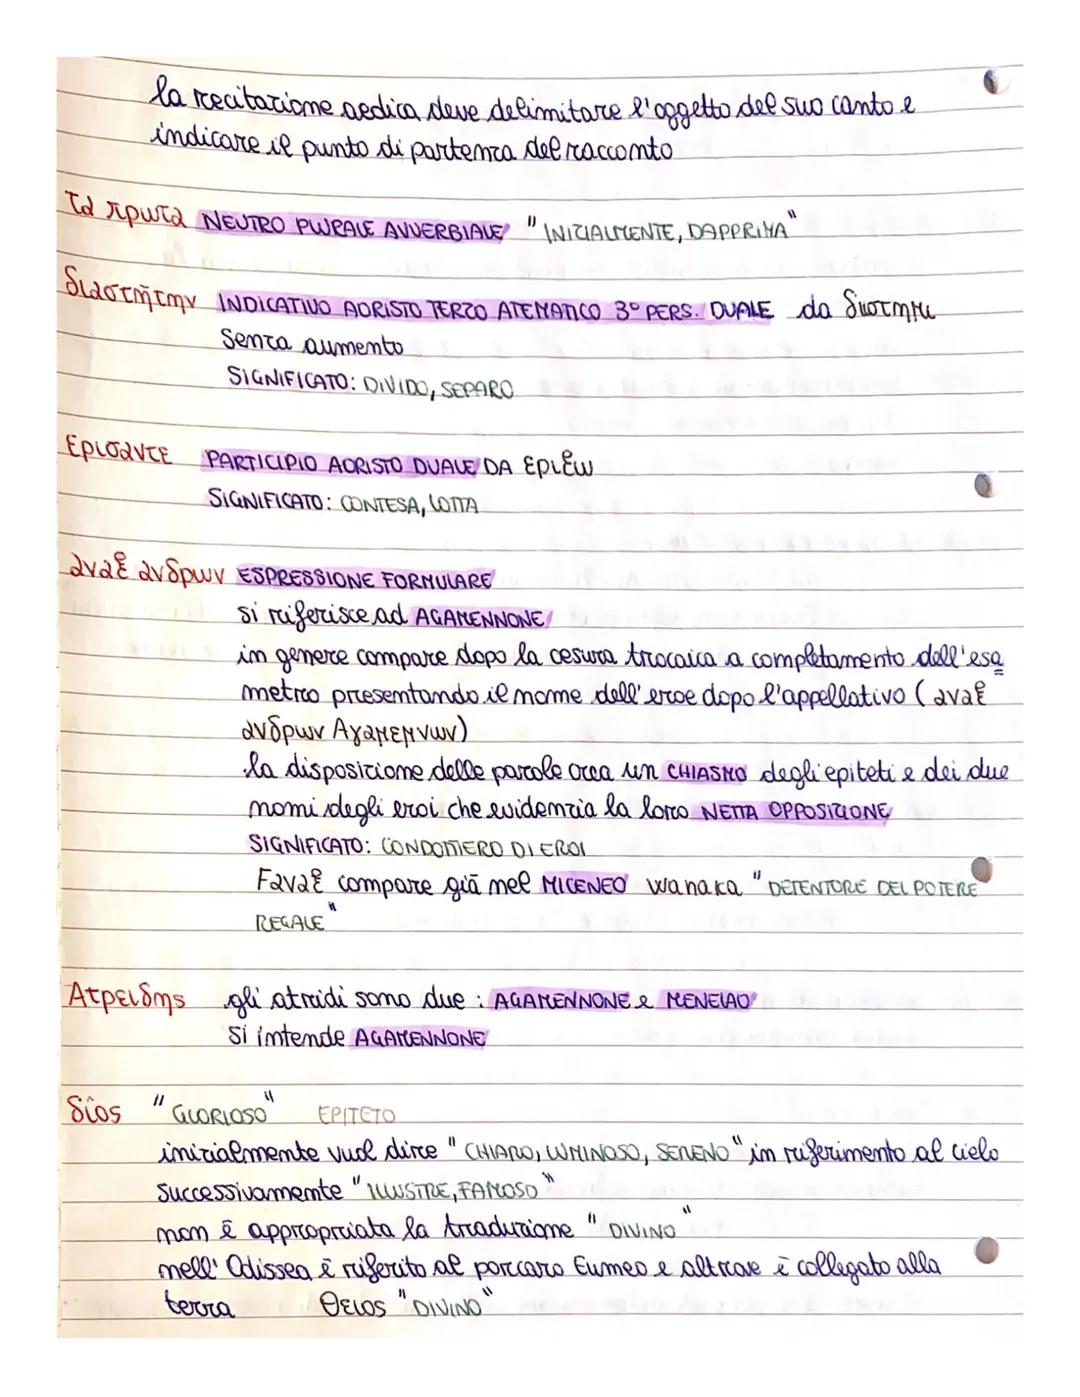 la recitazione aedica deve delimitare l'oggetto del suo canto e
indicare il punto di partenza del racconto
τα πρωτα NEUTRO PLURALE AVVERBIALE "INIZIALMENTE, DAPPRIMA"
διαστήτην INDICATIVO AORISTO TERZO ATEMATICO 3° PERS. DUALE da διιστημι
Senza aumento
SIGNIFICATO: DIVIDO, SEPARO
ερισαντε PARTICIPIO AORISTO DUALE DA εριξω
SIGNIFICATO: CONTESA, LOTTA
αναξ ανδρων ESPRESSIONE FORMULARE
si riferisce ad AGAMENNONE
in genere compare dopo la cesura trocaica a completamento dell'esa
metro presentando il nome dell'eroe dopo l'appellativo (αναξ
ανδρων Αγαμεμνων)
la disposizione delle parole crea un CHIASMO degli epiteti e dei due
nomi degli eroi che evidenzia la loro NETTA OPPOSIZIONE
SIGNIFICATO: CONDOTTIERO DI EROI
Fαναξ compare già nel MICENEO wanaka "DETENTORE DEL POTERE
REGALE"
Ατρειδης gli atridi sono due: AGAMENNONE e MENELAO
si intende AGAMENNONE
δῖος "GLORIOSO" EPITETO
inizialmente vuol dire "CHIARO, LUMINOSO, SERENO" in riferimento al cielo
Successivamente "ILLUSTRE, FAMOSO"
non è appropriata la traduzione "DIVINO"
nell'Odissea è riferito al porcaro Eumeo e altrove è collegato alla
terra θειος "DIVINO"